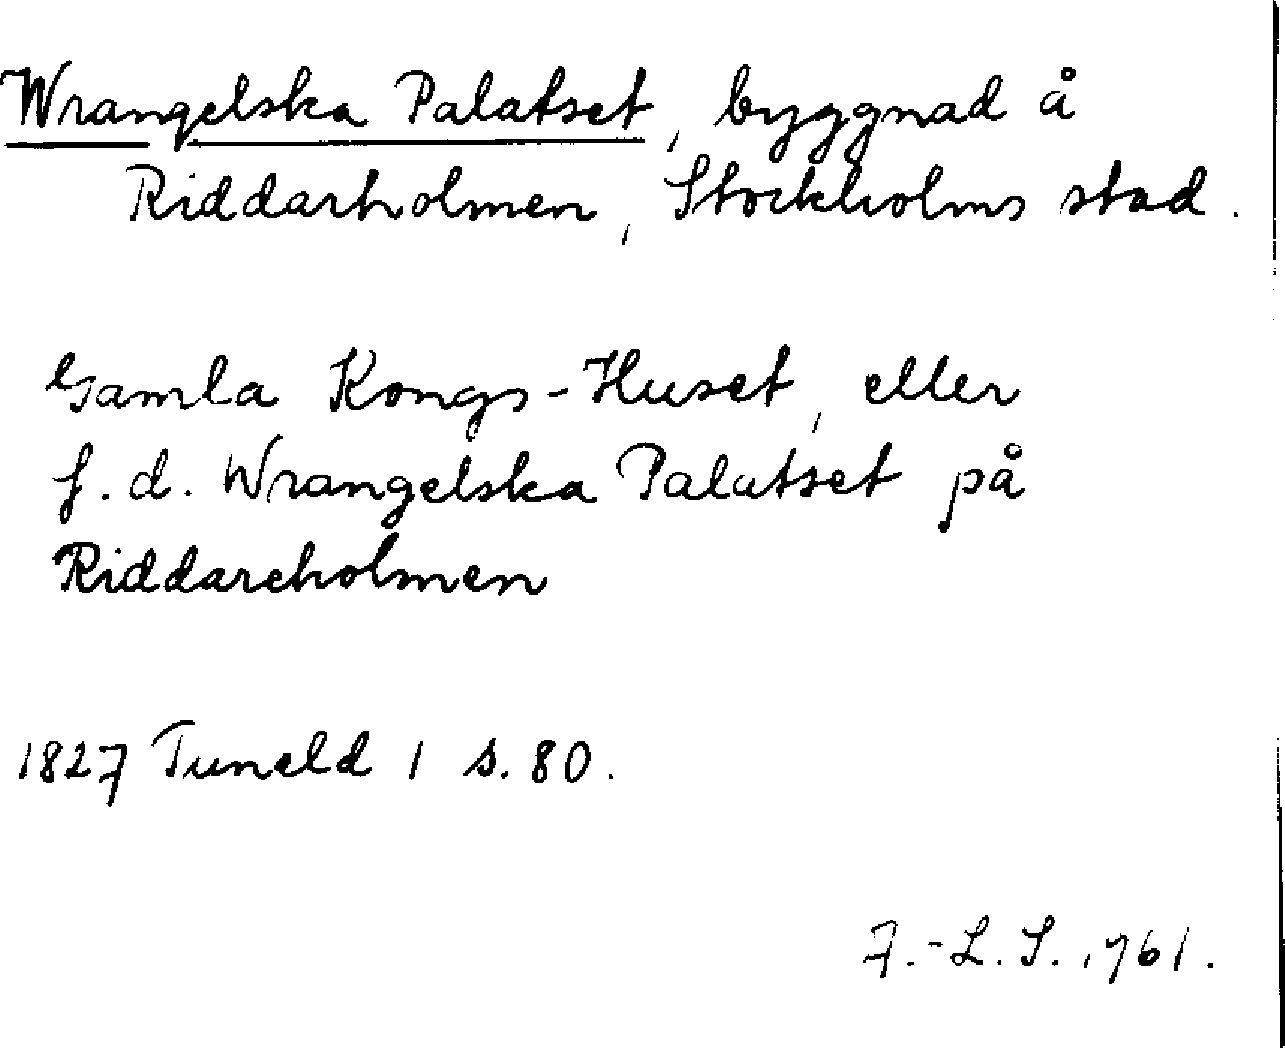 Wrangelska Palatset, byggnad å
Riddarholmen, Stockholms stad.
Gamla Kongs-Huset, eller
f.d. Wrangelska Palatset på
Riddareholmen
1827 Tuneld 1 s. 80.
F.-L. S. 1961.